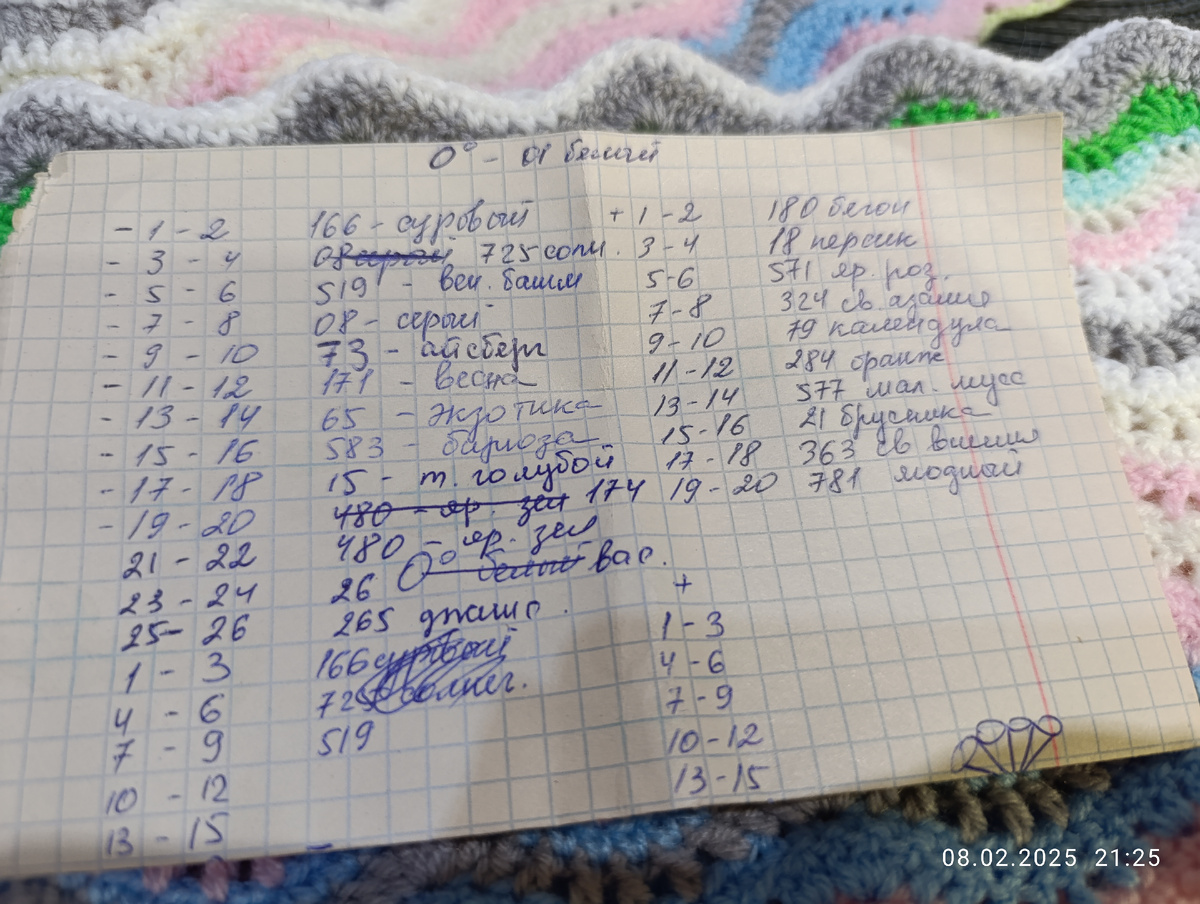 0° - 01 белый
- 1 - 2 166 - суровый
- 3 - 4 08 серый 725 солн.
- 5 - 6 519 - вен. башм
- 7 - 8 08 - серый
- 9 - 10 73 - айсберг
- 11 - 12 171 - весна
- 13 - 14 65 - экзотика
- 15 - 16 583 - бирюза
- 17 - 18 15 - т. голубой
- 19 - 20 480 - яр. зел 174
21 - 22 480 - яр. зел
23 - 24 26 0° белый вас.
25 - 26 265 джинс.
1 - 3 166 суровый
4 - 6 725 солнеч.
7 - 9 519
10 - 12
13 - 15
+ 1 - 2 180 бегон
3 - 4 18 персик
5 - 6 571 яр. роз.
7 - 8 324 св азалия
9 - 10 79 календула
11 - 12 284 оранж
13 - 14 577 мал. мусс
15 - 16 21 брусника
17 - 18 363 св вишня
19 - 20 781 модный
+
1 - 3
4 - 6
7 - 9
10 - 12
13 - 15
08.02.2025 21:25